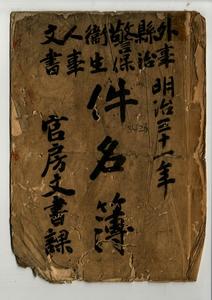 外事
縣治
警保
衞生
人事
文書
明治三十一年
件名簿
官房文書課